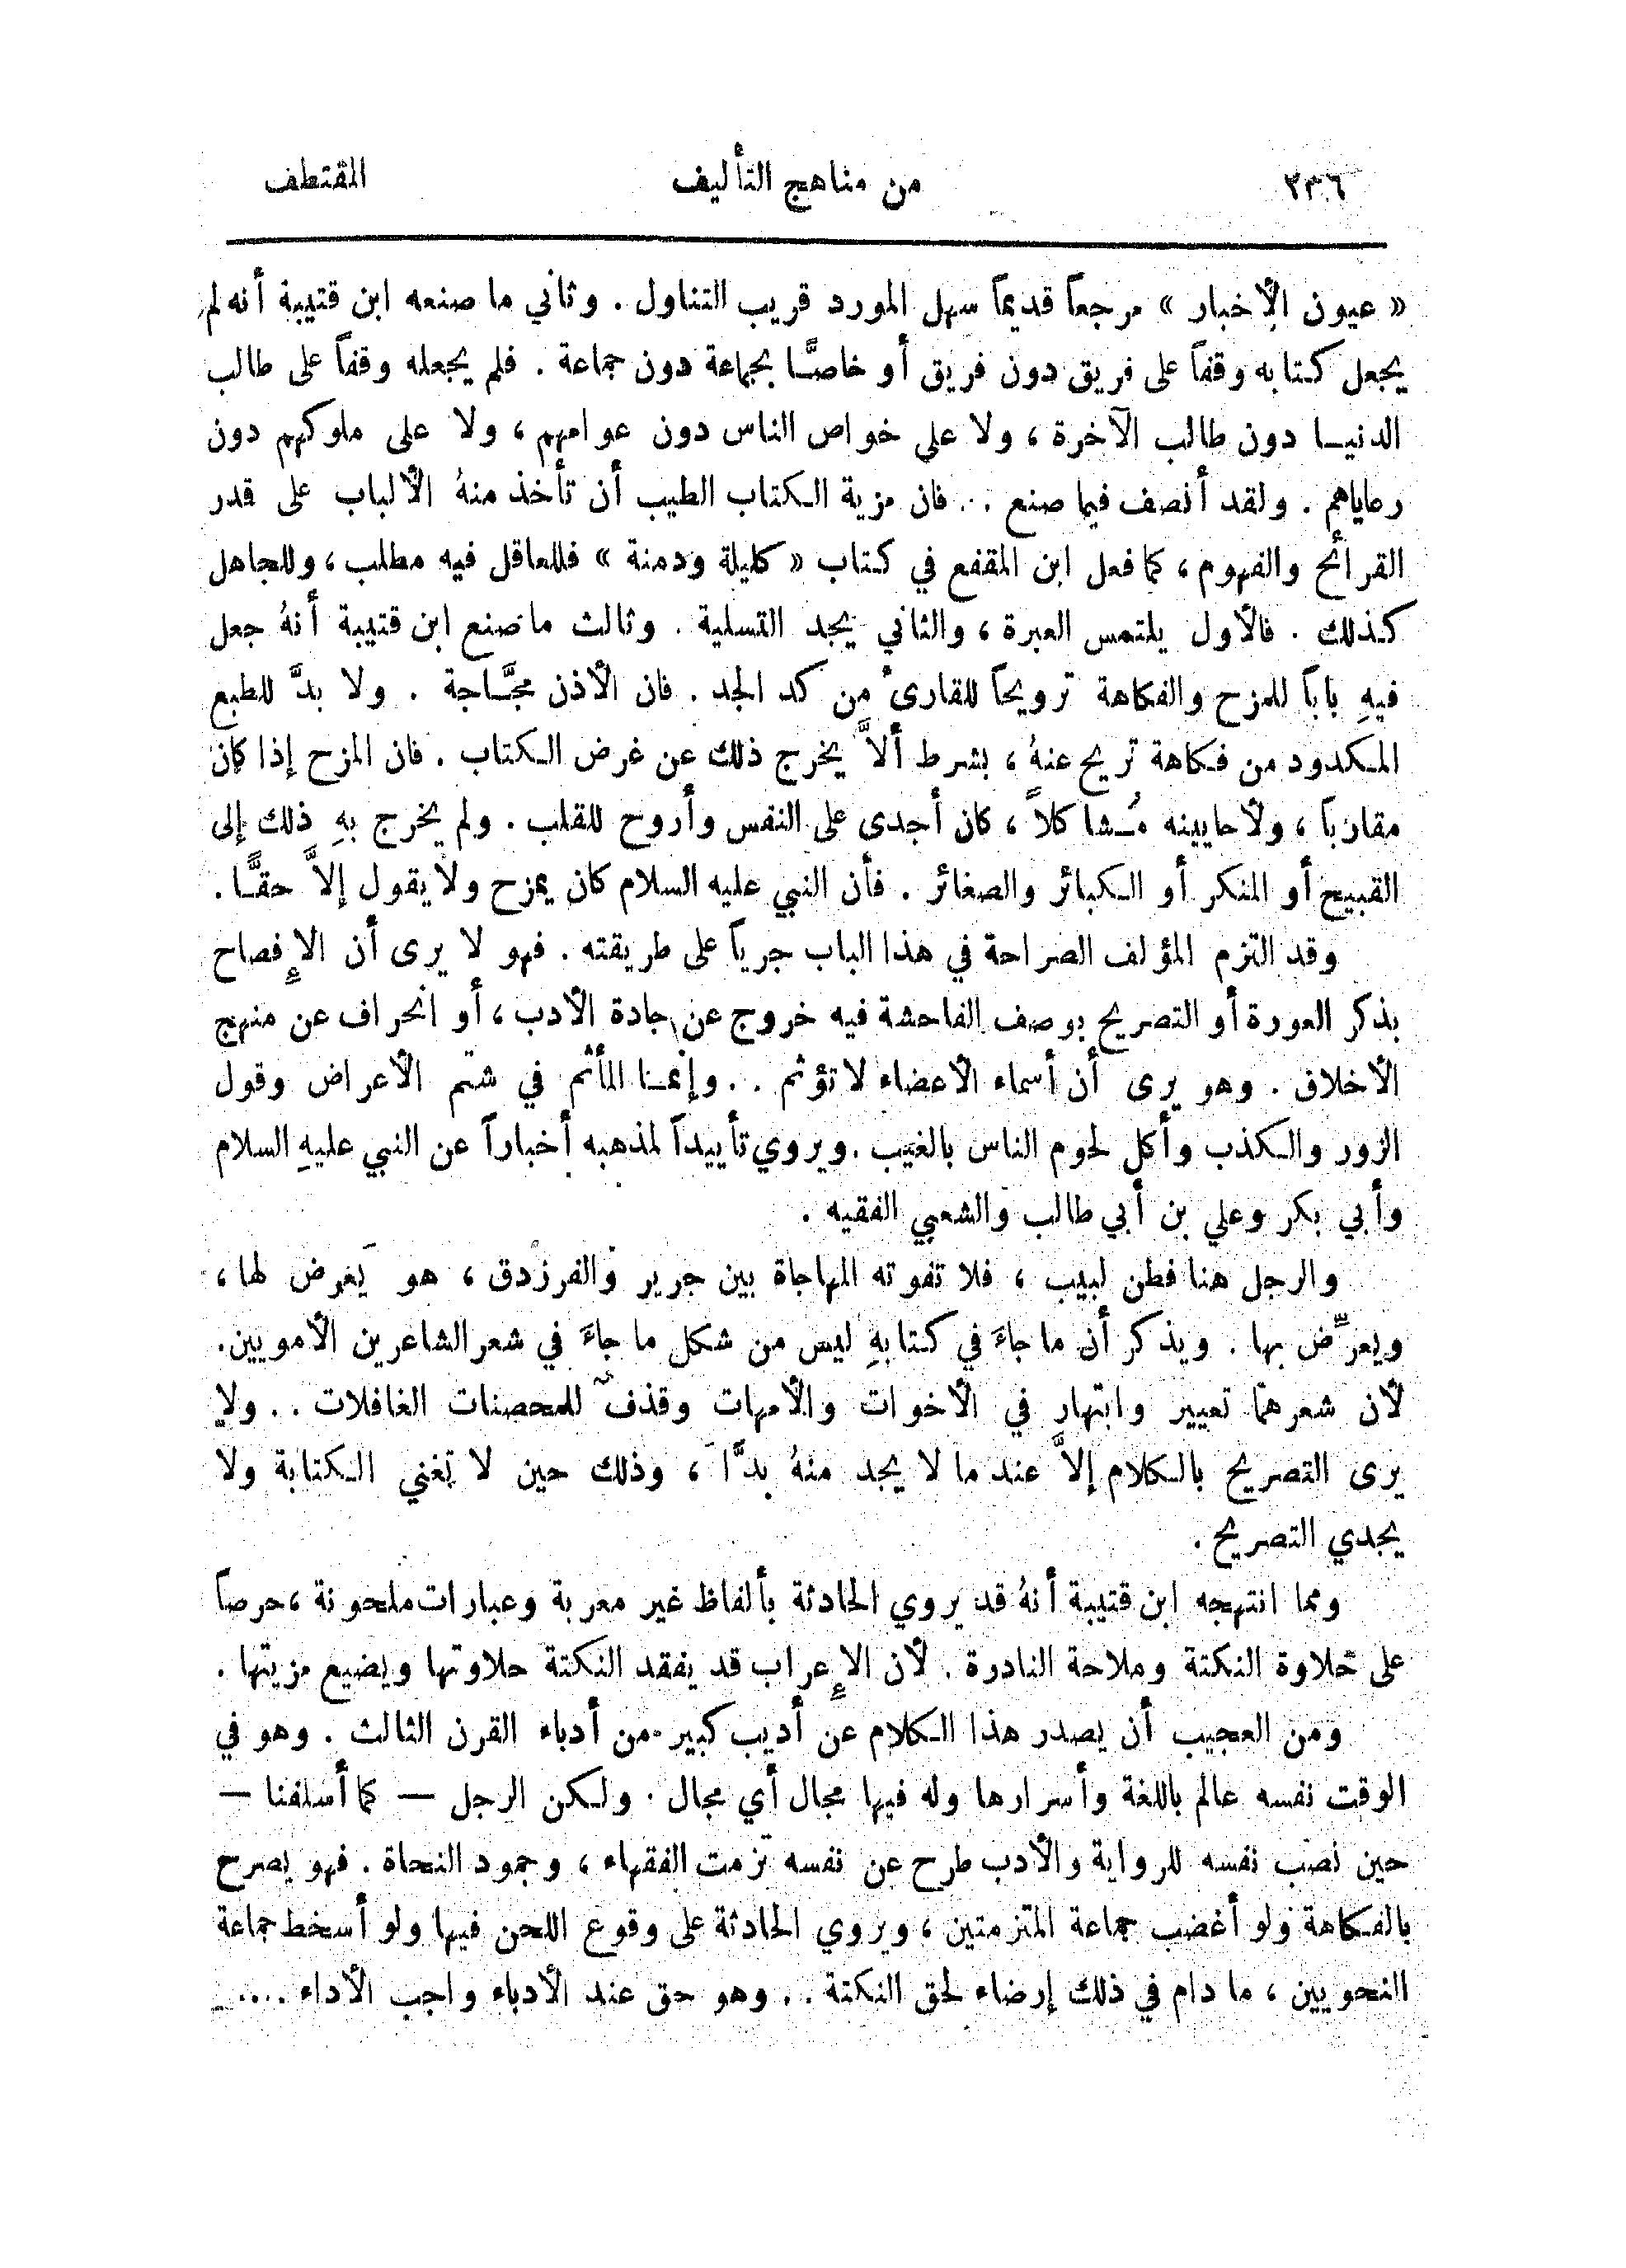 ٢٣٦ من مناهج التأليف المقتطف
« عيون الأخبار » مرجعاً قديماً سهل المورد قريب التناول . وثاني ما صنعه ابن قتيبة أنه لم
يجعل كتابه وقفاً على فريق دون فريق أو خاصًّا بجماعة دون جماعة . فلم يجعله وقفاً على طالب
الدنيا دون طالب الآخرة ، ولا على خواص الناس دون عوامهم ، ولا على ملوكهم دون
رعاياهم . ولقد أنصف فيما صنع . . فان مزية الكتاب الطيب أن تأخذ منهُ الألباب على قدر
القرائح والفهوم ، كما فعل ابن المقفع في كتاب « كليلة ودمنة » فللعاقل فيه مطلب ، وللجاهل
كذلك . فالأول يلتمس العبرة ، والثاني يجد التسلية . وثالث ما صنع ابن قتيبة أنهُ جعل
فيهِ باباً للمزح والفكاهة ترويحاً للقارىء من كد الجد . فان الأذن مجَّاجة . ولا بدَّ للطبع
المكدود من فكاهة تريح عنهُ ، بشرط ألاَّ يخرج ذلك عن غرض الكتاب . فان المزح إذا كان
مقارباً ، ولأحايينه مُشاكلاً ، كان أجدى على النفس وأروح للقلب . ولم يخرج بهِ ذلك إلى
القبيح أو المنكر أو الكبائر والصغائر . فأن النبي عليه السلام كان يمزح ولا يقول إلاَّ حقًّا .
وقد التزم المؤلف الصراحة في هذا الباب جرياً على طريقته . فهو لا يرى أن الإفصاح
بذكر العورة أو التصريح بوصف الفاحشة فيه خروج عن جادة الأدب ، أو انحراف عن منهج
الأخلاق . وهو يرى أن أسماء الأعضاء لا تؤثم . . وإنما المأثم في شتم الأعراض وقول
الزور والكذب وأكل لحوم الناس بالغيب . ويروي تأييداً لمذهبه أخباراً عن النبي عليهِ السلام
وأبي بكر وعلي بن أبي طالب والشعبي الفقيه .
والرجل هنا فطن لبيب ، فلا تفوته المهاجاة بين جرير والفرزدق ، هو يَعرض لها ،
ويعرِّض بها . ويذكر أن ما جاءَ في كتابهِ ليس من شكل ما جاءَ في شعر الشاعرين الأمويين.
لأن شعرهما تعيير وابتهار في الأخوات والأمهات وقذف للمحصنات الغافلات . . ولا
يرى التصريح بالكلام إلاَّ عند ما لا يجد منهُ بدًّا ، وذلك حين لا تغني الكتابة ولا
يجدي التصريح .
ومما انتهجه ابن قتيبة أنهُ قد يروي الحادثة بألفاظ غير معربة وعبارات ملحونة ، حرصاً
على حلاوة النكتة وملاحة النادرة . لأن الإعراب قد يفقد النكتة حلاوتها ويضيع مزيتها .
ومن العجيب أن يصدر هذا الكلام عن أديب كبير من أدباء القرن الثالث . وهو في
الوقت نفسه عالم باللغة وأسرارها وله فيها مجال أي مجال . ولكن الرجل — كما أسلفنا —
حين نصب نفسه للرواية والأدب طرح عن نفسه تزمت الفقهاء ، وجمود النحاة . فهو يصرح
بالفكاهة ولو أغضب جماعة المتزمتين ، ويروي الحادثة على وقوع اللحن فيها ولو أسخط جماعة
النحويين ، ما دام في ذلك إرضاء لحق النكتة . . وهو حق عند الأدباء واجب الأداء ....